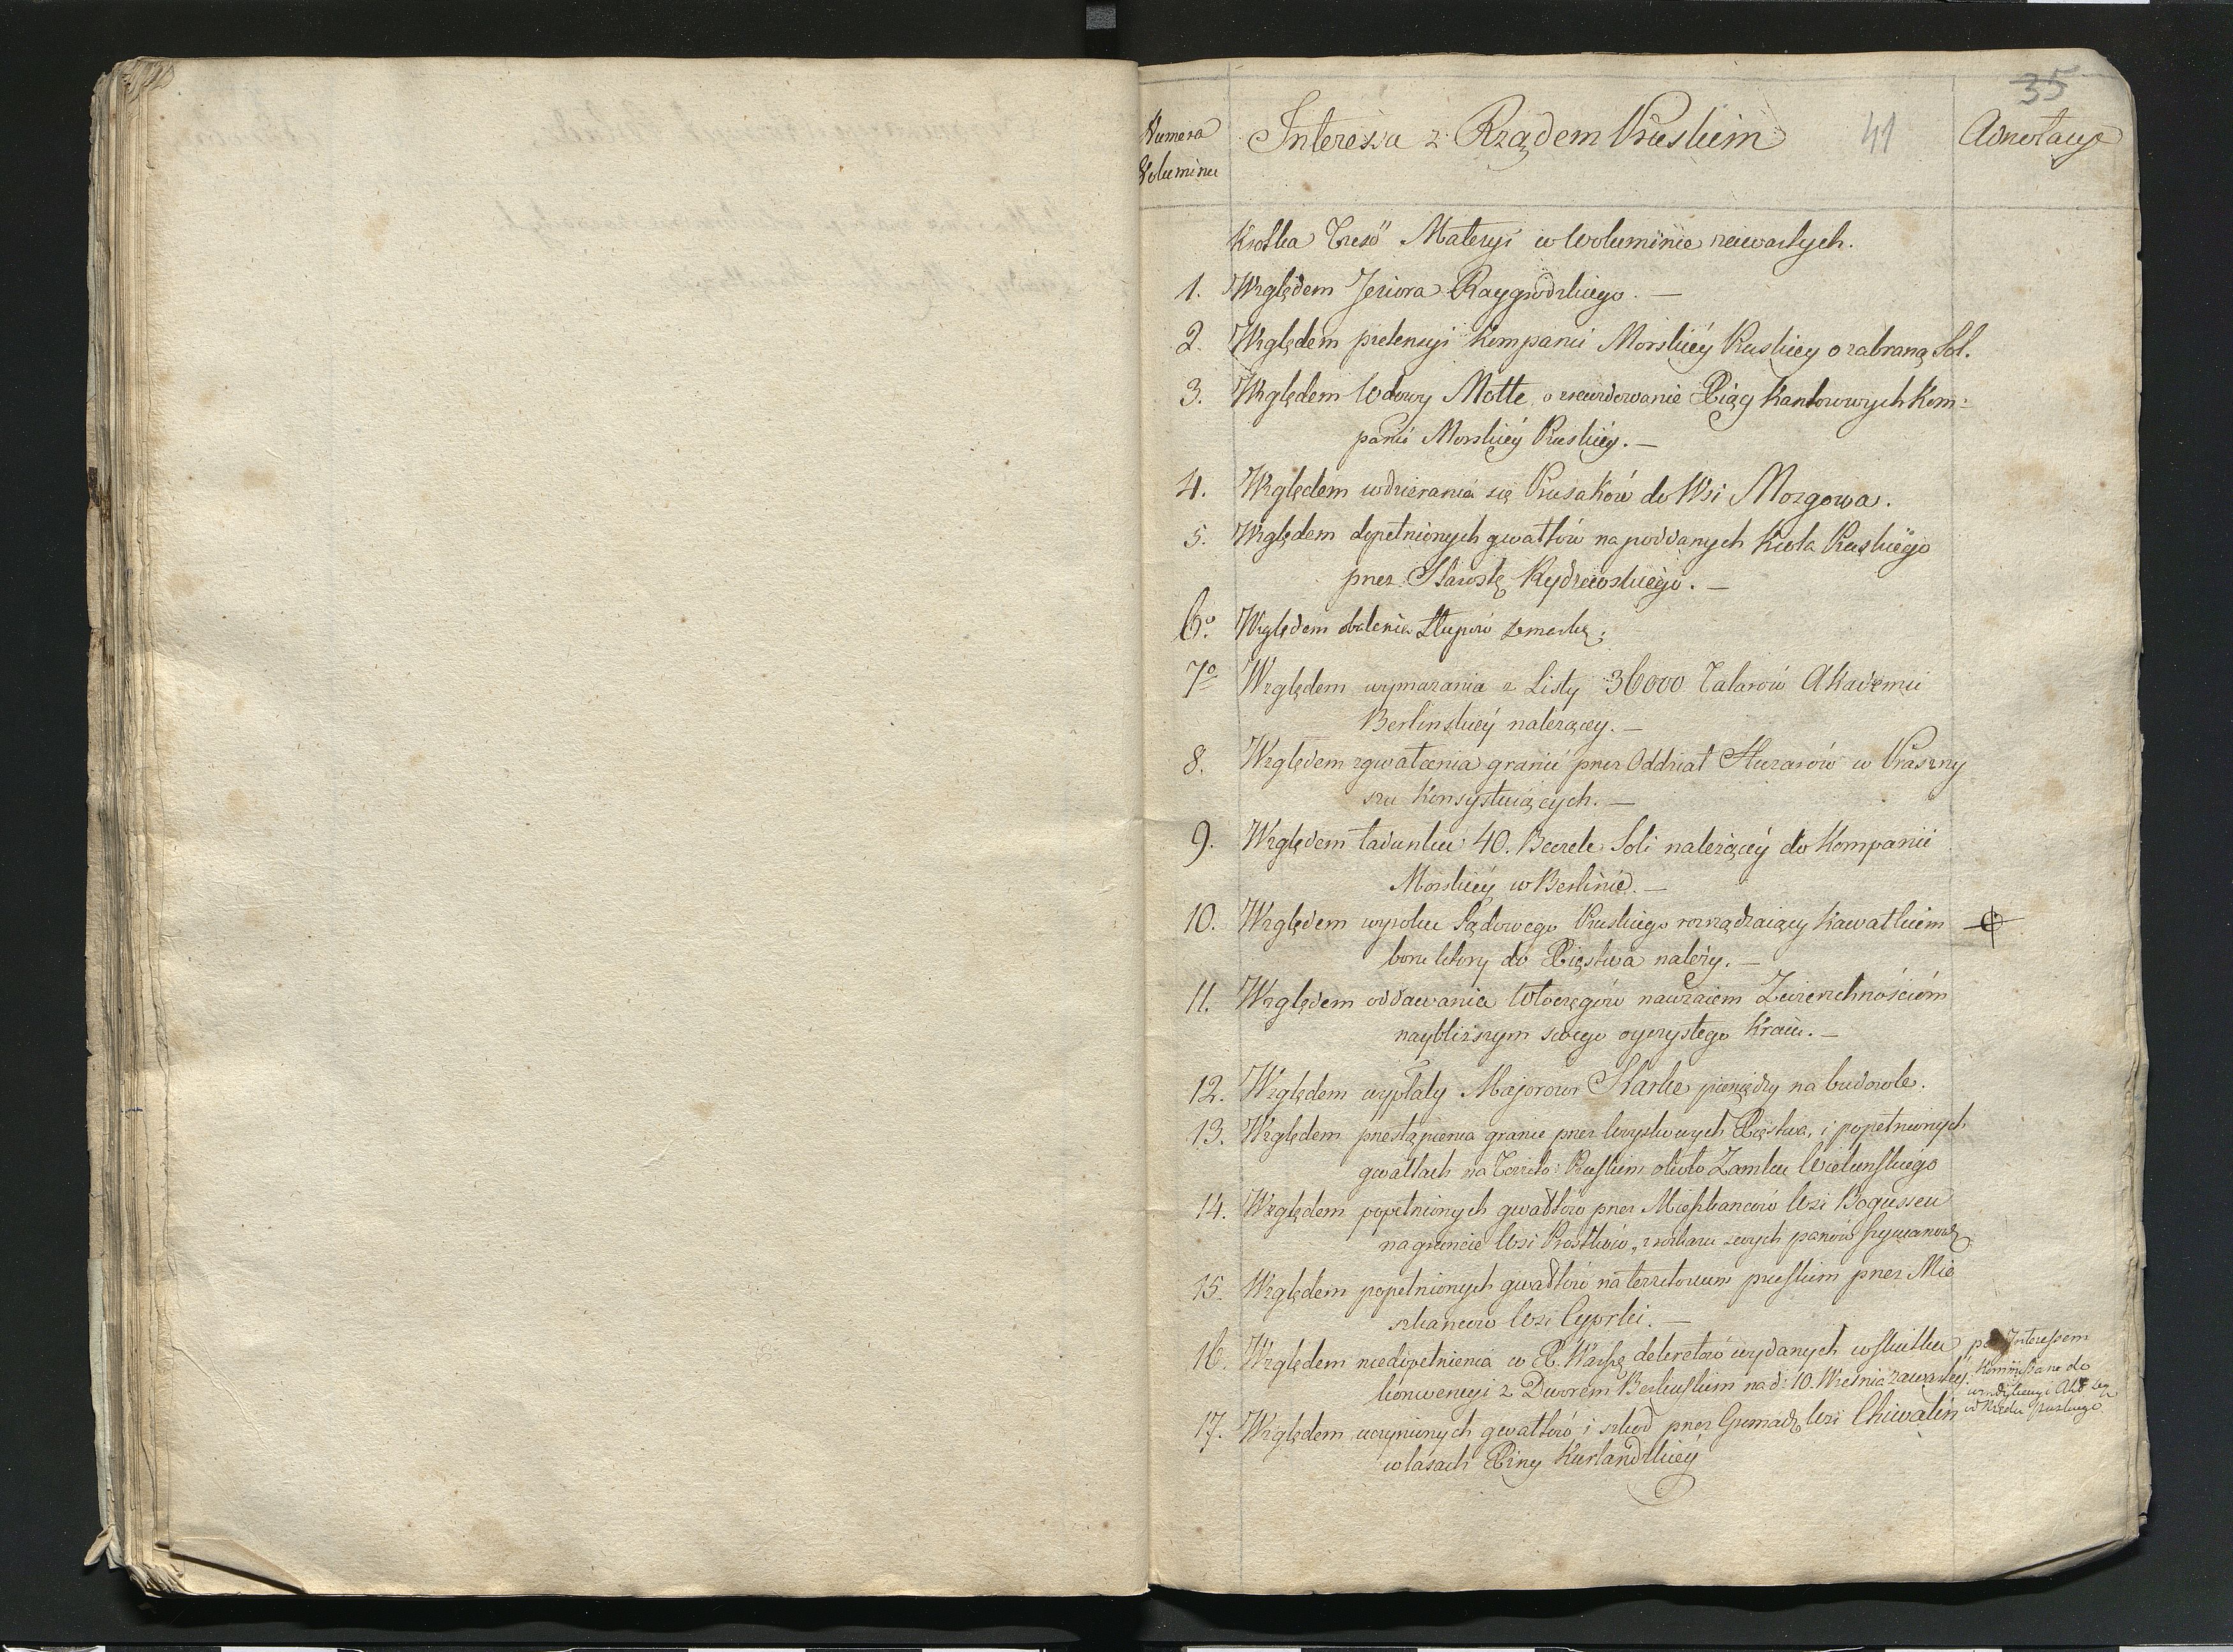 35
Numera
Voluminu
Interessa z Rządem Pruskim
41
Adnotacye
Krotka Treść Materyi w Woluminie zawartych.
1. Względem Jeziora Raygrodzkiego. —
2. Względem pretensyi Kompanii Morskiéy Pruskiey o zabraną Sol.
3. Względem Wdowy Motte, o Xiąg Kantorowych Kom-
panii Morskiéy Pruskiéy. —
4. Względem wdzierania się Prusaków do Wsi Mozgowa.
5. Względem dopełnionych gwałtów na poddanych Króla Pruskiego
przez Starostę Rydzewskiego. —
6o. Względem obalenia Słupów
7o Względem wymazania z Listy 36000 Talarów Akademii
Berlinskiéy należącey. —
8. Względem zgwałcenia granic przez Oddział Huzarów w Praszny
szu Konsystuiących. —
9. Względem ładunku 40. Beczek Soli należącéy do Kompanii
Morskiéy w Berlinie. —
10. Względem wyroku Sądowego Pruskiego rozrządzaiący Kawałkiem
boru ktory do Xięstwa należy. —
11. Względem oddawania Włoczęgów nawzaiem Zwierzchnościom
naybliższym swego oyczystego Kraiu. —
12. Względem wypłaty Majorowi Starke pieniędzy na budowle.
13. Względem przestąpienia granic przez Woyskowych Xięstwa, i popełnionych
gwałtach na Territo: Pruskim około Zamku Wielunskiego
14. Względem popełnionych gwałtów przez Mieszkancow Wsi Bogussen
na gruncie Wsi Prostków, z rozkazu swych panów
15. Względem popełnionych gwałtów na territorium pruskim przez Mie
szkancow Wsi Cyprki. —
16. Względem niedopełnienia w X. Warsz: dekretów wydanych w skutku
konwencyi z Dworem Berlinskim na d: 10. Wresnia zawartéy.
pod Interessem
Kommissane do
Akt
Rządu pruskiego
17. Względem uczynionych gwałtów i szkod przez Gromadę Wsi Chwalin
w lasach Xzny Kurlandzkiéy